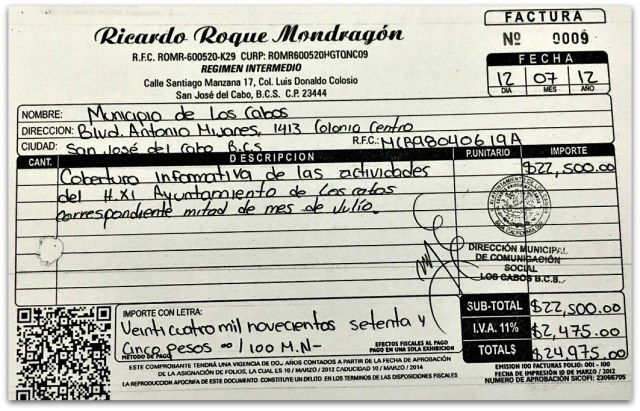 FACTURA
Ricardo Roque Mondragón
Nº 0009
R.F.C. ROMR-600520-K29 CURP: ROMR600520HGTQNC09
REGIMEN INTERMEDIO
FECHA
Calle Santiago Manzana 17, Col. Luis Donaldo Colosio
12 07 12
San José del Cabo, B.C.S. C.P. 23444
DIA MES AÑO
NOMBRE: Municipio de Los Cabos
DIRECCION: Blvd. Antonio Mijares, 1413 Colonia Centro
CIUDAD: San José del Cabo B.C.S R.F.C.: MCB98040619A
CANT. DESCRIPCION P.UNITARIO IMPORTE
Cobertura Informativa de las actividades $22,500.00
del H.XI Ayuntamiento de Los cabos
correspondiente mitad de mes de Julio.
DIRECCIÓN MUNICIPAL
DE COMUNICACIÓN
SOCIAL
LOS CABOS B.C.S.
IMPORTE CON LETRA:
SUB-TOTAL $22,500.00
Veinticuatro mil novecientos setenta y
I.V.A. 11% $2,475.00
cinco pesos 00/100 M.N-
EFECTOS FISCALES AL PAGO
METODO DE PAGO
PAGO EN UNA SOLA EXHIBICION
TOTAL$ $24,975.00
ESTE COMPROBANTE TENDRÁ UNA VIGENCIA DE DOS AÑOS CONTADOS A PARTIR DE LA FECHA DE APROBACIÓN
DE LA ASIGNACIÓN DE FOLIOS, LA CUAL ES 10 / MARZO / 2012 CADUCIDAD 10 / MARZO / 2014
LA REPRODUCCIÓN APOCRIFA DE ESTE DOCUMENTO CONSTITUYE UN DELITO EN LOS TERMINOS DE LAS DISPOSICIONES FISCALES
EMISION 100 FACTURAS FOLIO: 001 - 100
FECHA DE IMPRESIÓN 10 DE MARZO / 2012
NUMERO DE APROBACIÓN SICOFI: 23066705